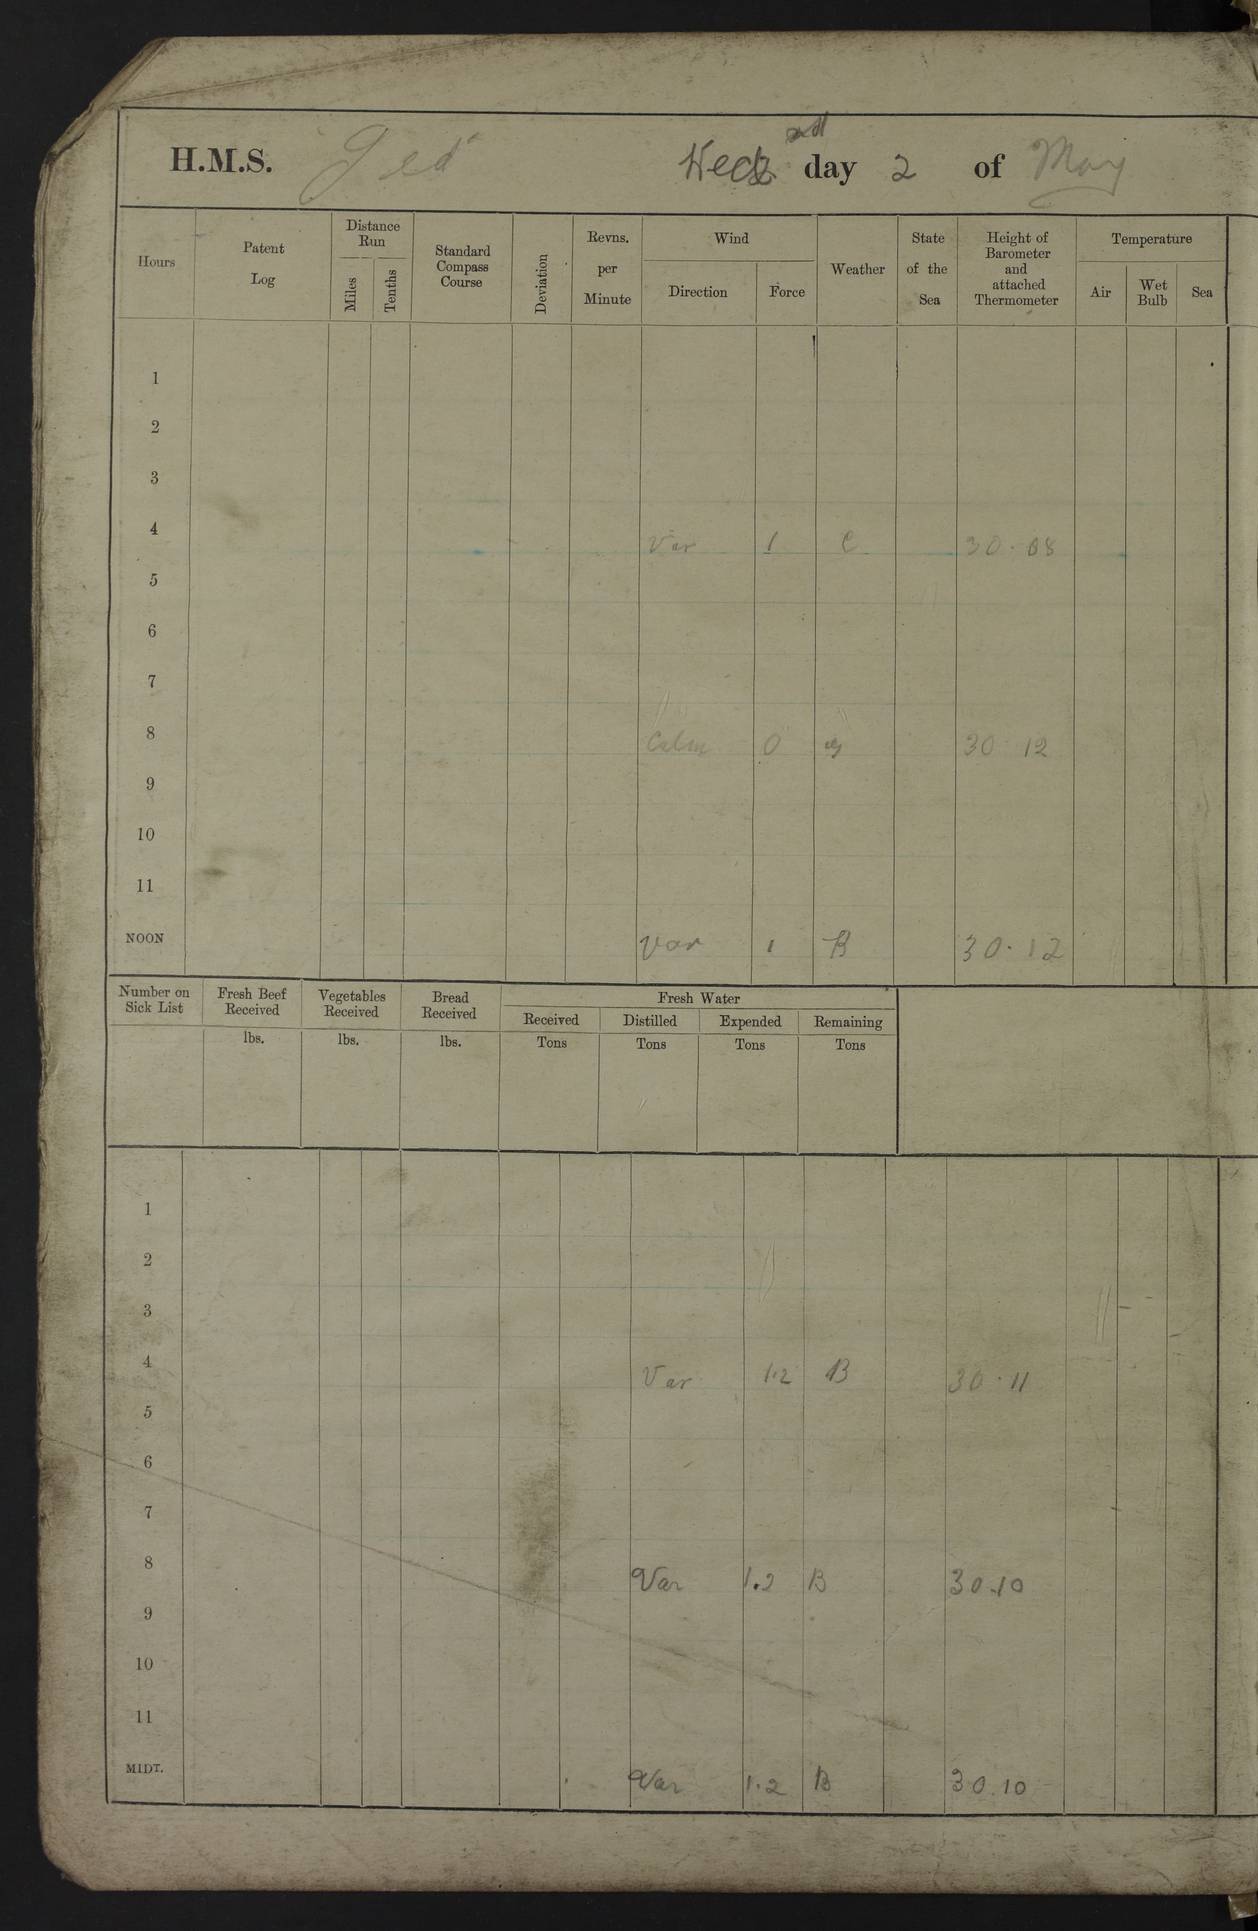 H.M.S. Jed Weds day 2 of May
Hours Patent Log Distance Run Miles Tenths Standard Compass Course Deviation Revns. per Minute Wind Direction Force Weather State of the Sea Height of Barometer and attached Thermometer Temperature Air Wet Bulb Sea
1
2
3
4 Var 1 C 30.08
5
6
7
8 Calm 0 g 30 12
9
10
11
NOON Var 1 B 30.12
Number on Sick List Fresh Beef Received Vegetables Received Bread Received Fresh Water
Received Distilled Expended Remaining
lbs. lbs. lbs. Tons Tons Tons Tons
1
2
3
4 Var 1.2 B 30.11
5
6
7
8 Var 1.2 B 30.10
9
10
11
MIDT. Var 1.2 B 30.10